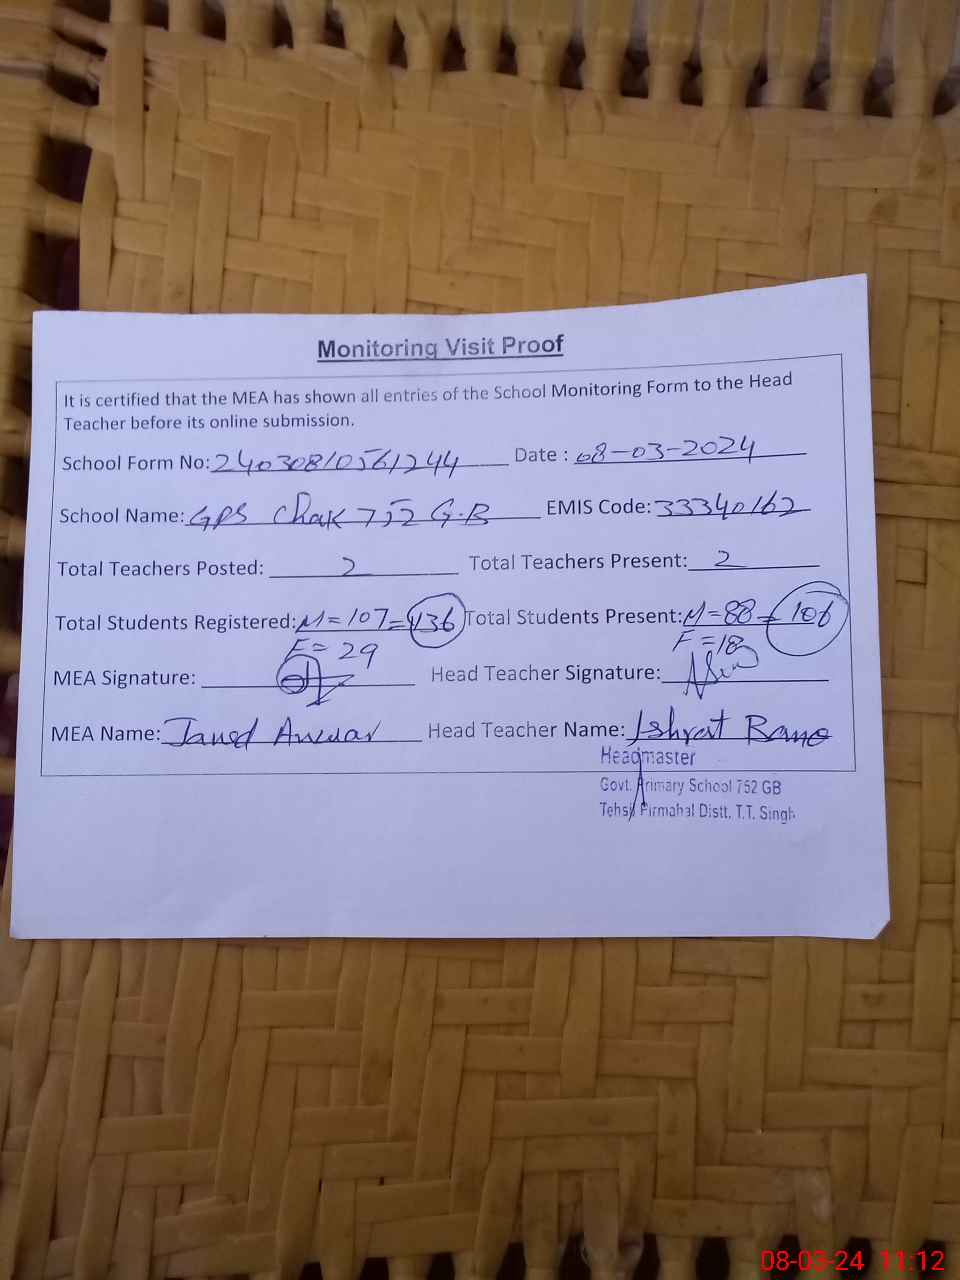 Monitoring Visit Proof
It is certified that the MEA has shown all entries of the School Monitoring Form to the Head
Teacher before its online submission.
School Form No: 24030810561244 Date : 08-03-2024
School Name: GPS Chak 752 G.B EMIS Code: 33340162
Total Teachers Posted: 2 Total Teachers Present: 2
Total Students Registered: M=107=136 Total Students Present: M=88=106
F=29 F=18
MEA Signature: Head Teacher Signature:
MEA Name: Javed Anwar Head Teacher Name: Ishrat Bano
Headmaster
Govt. Primary School 752 GB
Tehsil Pirmahal Distt. T.T. Singh
08-03-24 11:12